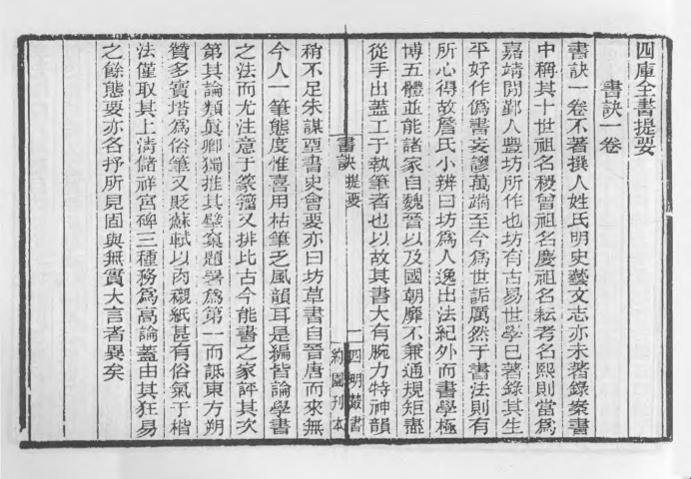 四庫全書提要
書訣一卷
書訣一卷不著撰人姓氏明史藝文志亦未著錄案書
中稱其十世祖名稷曾祖名慶祖名耘考名熙則當爲
嘉靖閒鄞人豐坊所作也坊有古易世學已著錄其生
平好作僞書妄謬萬端至今爲世詬厲然于書法則有
所心得故詹氏小辨曰坊爲人逸出法紀外而書學極
博五體並能諸家自魏晉以及國朝靡不兼通規矩盡
從手出蓋工于執筆者也以故其書大有腕力特神韻
書訣 提要
一 四明叢書
約園刊本
稍不足朱謀垔書史會要亦曰坊草書自晉唐而來無
今人一筆態度惟喜用枯筆乏風韻耳是編皆論學書
之法而尤注意于篆籀又排比古今能書之家評其次
第其論類眞卿獨推其擘窠題署爲第一而詆東方朔
贊多寶塔爲俗筆又貶蘇軾以肉襯紙甚有俗氣于楷
法僅取其上清儲祥宮碑三種務爲高論蓋由其狂易
之餘態要亦各抒所見固與無實大言者異矣